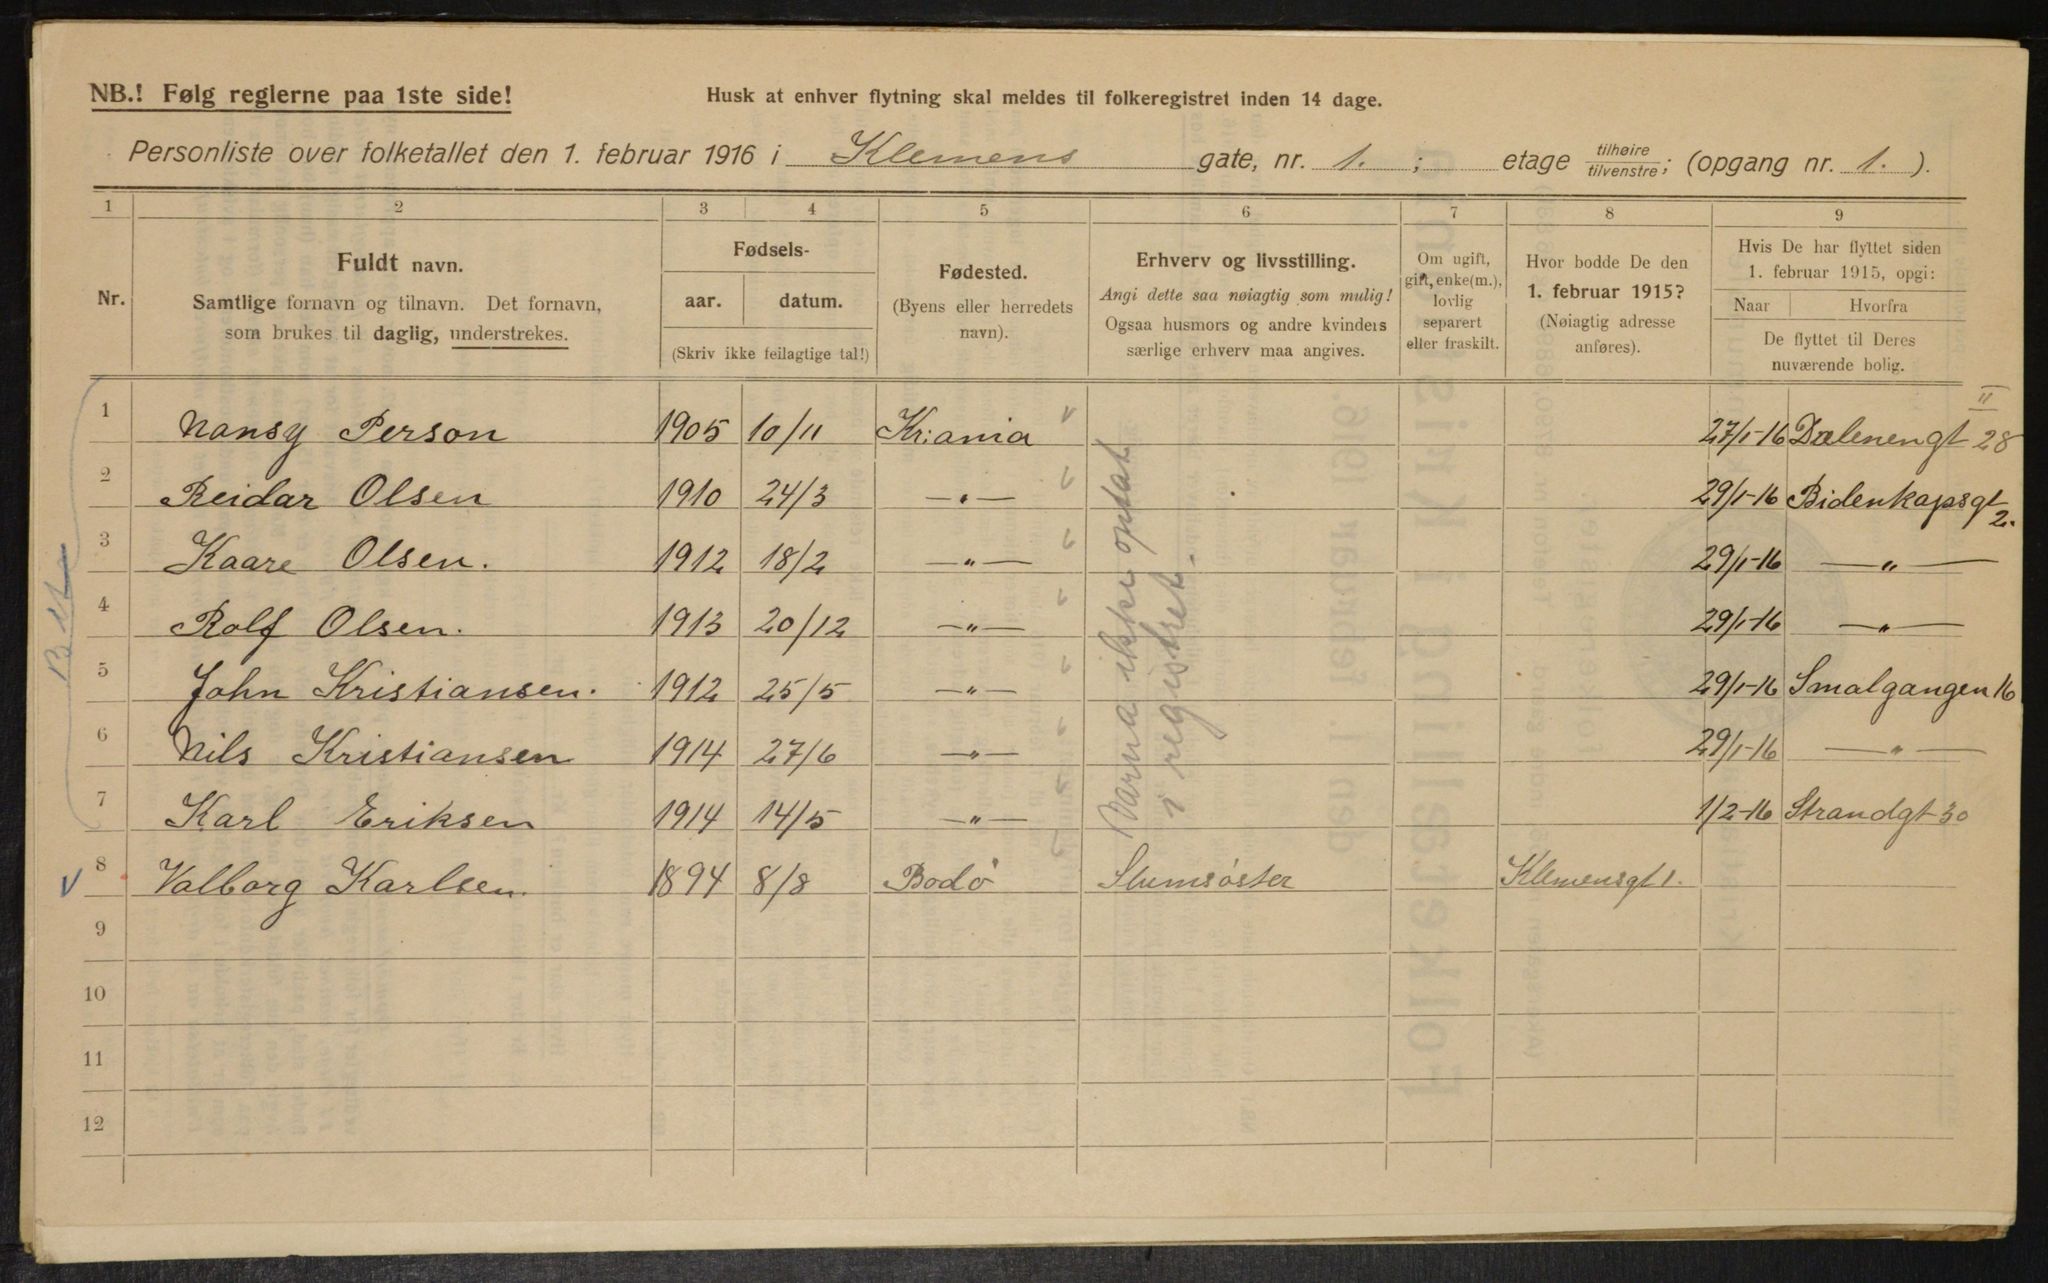 NB.! Følg reglerne paa 1ste side!
Husk at enhver flytning skal meldes til folkeregistret inden 14 dage.
Personliste over folketallet den 1. februar 1916 i Klemens gate, nr. 1. ; etage tilhøire/tilvenstre; (opgang nr. 1. ).
1 2 3 4 5 6 7 8 9
Nr.
Fuldt navn.
Samtlige fornavn og tilnavn. Det fornavn,
som brukes til daglig, understrekes.
Fødsels-
aar. datum.
(Skriv ikke feilagtige tal!)
Fødested.
(Byens eller herredets
navn).
Erhverv og livsstilling.
Angi dette saa nøiagtig som mulig!
Ogsaa husmors og andre kvinders
særlige erhverv maa angives.
Om ugift,
gift, enke(m.),
lovlig
separert
eller fraskilt.
Hvor bodde De den
1. februar 1915?
(Nøiagtig adresse
anføres).
Hvis De har flyttet siden
1. februar 1915, opgi:
Naar Hvorfra
De flyttet til Deres
nuværende bolig.
II
1 Nansy Person 1905 10/11 Kr:ania 27/1-16 Dælenengt 28
2 Reidar Olsen 1910 24/3 —"— 29/1-16 Bidenkapsgt 2.
3 Kaare Olsen. 1912 18/2 —"— 29/1-16 —"—
4 Rolf Olsen. 1913 20/12 —"— 29/1-16 —"—
5 John Kristiansen. 1912 25/5 —"— 29/1-16 Smalgangen 16
6 Nils Kristiansen 1914 27/6 —"— 29/1-16 —"—
7 Karl Eriksen 1914 14/5 —"— 1/2-16 Strandgt 30
8 Valborg Karlsen. 1894 8/8 Bodö Slumsöster Klemensgt 1.
9
10
11
12
Barna ikke optat
i registret.